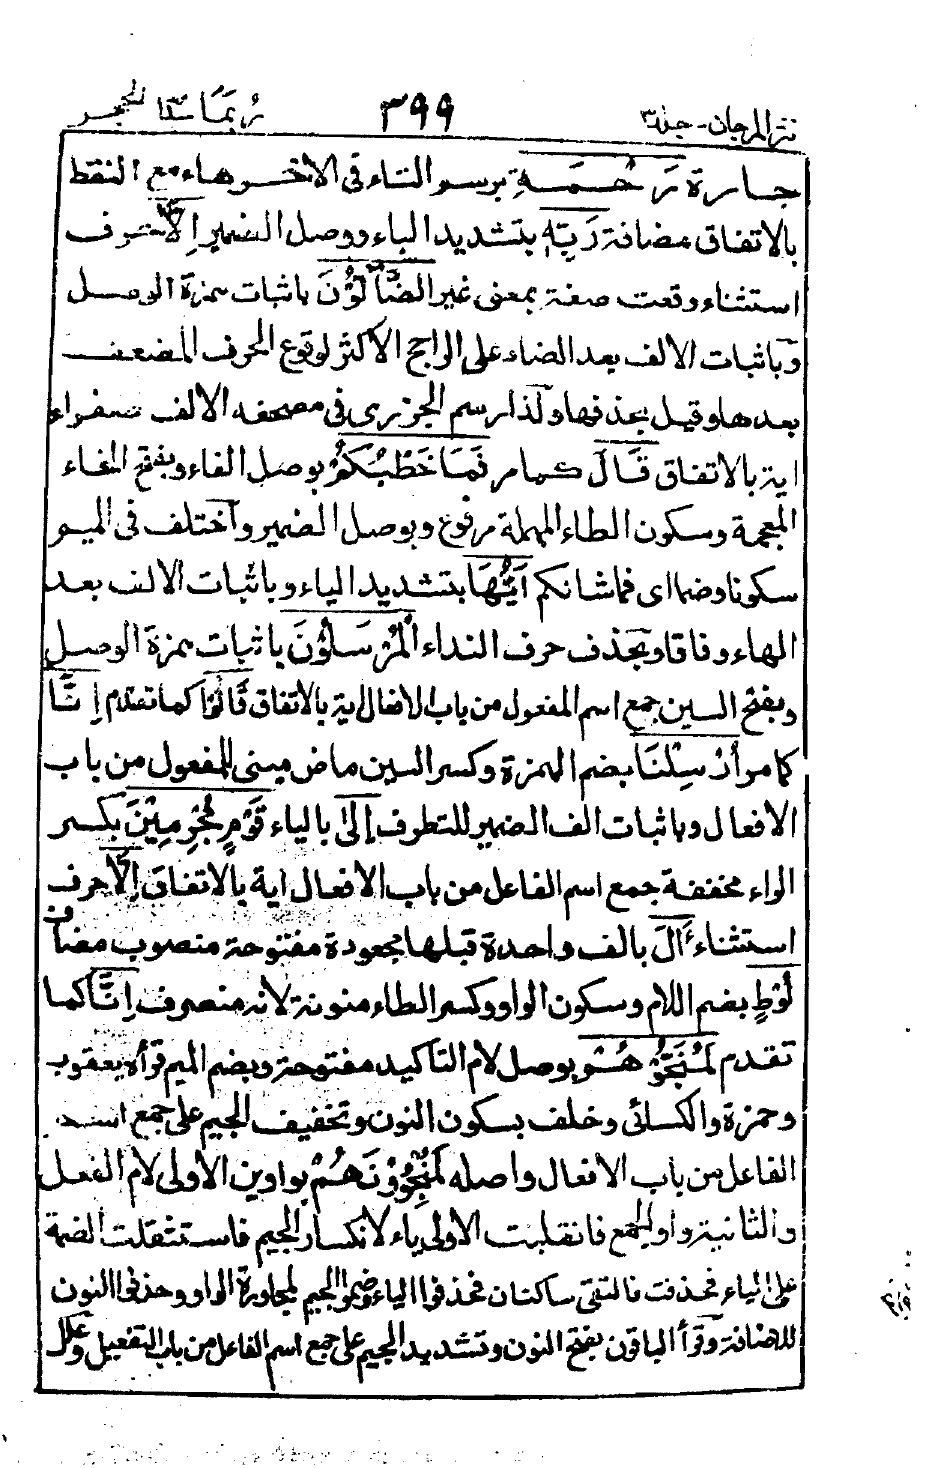 نثر المرجان - جلد ٣ ٣٩٩ ربما ١٤ الحجر
جارة رَحْمَةِ برسم التاء في الاخر هاء مع النقط
بالاتفاق مضافة رَبِّهٖ بتشديد الباء ووصل الضمير اِلَّا حرف
استثناء وقعت صفة بمعنى غير الضَّآلُّوْنَ باثبات همزة الوصل
وباثبات الالف بعد الضاد على الراجح الاكثر لوقوع الحرف المضعف
بعدها وقيل بحذفها ولذا رسم الجزرى في مصحفه الالف صفراء
اية بالاتفاق قَالَ كما مر فَمَا خَطْبُكُمْ بوصل الفاء وبفتح الخاء
المعجمة وسكون الطاء المهملة مرفوع وبوصل الضمير واختلف في الميم
سكونا وضما اى فما شانكم اَيُّهَا بتشديد الياء وباثبات الالف بعد
الهاء وفاقا وبحذف حرف النداء الْمُرْسَلُوْنَ باثبات همزة الوصل
وبفتح السين جمع اسم المفعول من باب الافعال اية بالاتفاق قَالُوْا كما تقدم اِنَّا
كما مر اُرْسِلْنَا بضم الهمزة وكسر السين ماض مبنى للمفعول من باب
الافعال وباثبات الف الضمير للتطرف اِلٰى بالياء قَوْمٍ مُّجْرِمِيْنَ بكسر
الراء مخففة جمع اسم الفاعل من باب الافعال اية بالاتفاق اِلَّا حرف
استثناء اٰلَ بالف واحدة قبلها مجعودة مفتوحة منصوب مضاف
لُوْطٍ بضم اللام وسكون الواو وكسر الطاء منونة لانه منصرف اِنَّا كما
تقدم لَمُنَجُّوْهُمْ بوصل لام التاكيد مفتوحة وبضم الميم قرأه يعقوب
وحمزة والكسائى وخلف بسكون النون وتخفيف الجيم على جمع اسم
الفاعل من باب الافعال واصله لَمُنْجِوُوْنَهُمْ بواوين الاولى لام الفعل
والثانية واو الجمع فانقلبت الاولى ياء لانكسار الجيم فاستثقلت الضمة
على الياء فحذفت فالتقى ساكنان فحذفوا الياء وضموا الجيم لمجاورة الواو وحذفوا النون
للاضافة وقرأ الباقون بفتح النون وتشديد الجيم على جمع اسم الفاعل من باب التفعيل وعلل